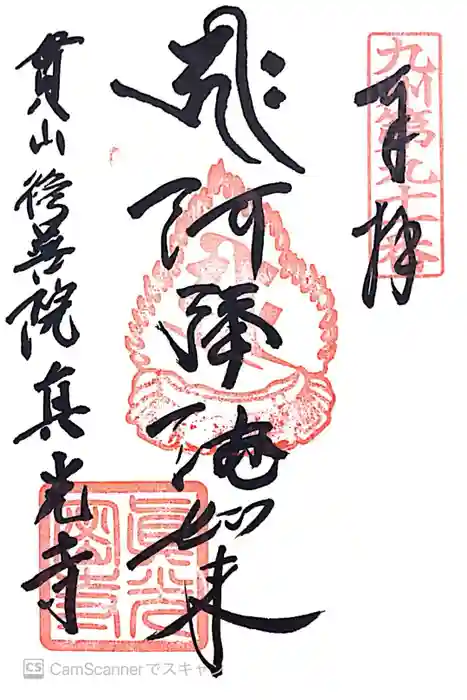 奉拝
九州第九十番
阿弥陀如来
貫山 院 真光寺
眞光密寺
CS CamScannerでスキャ